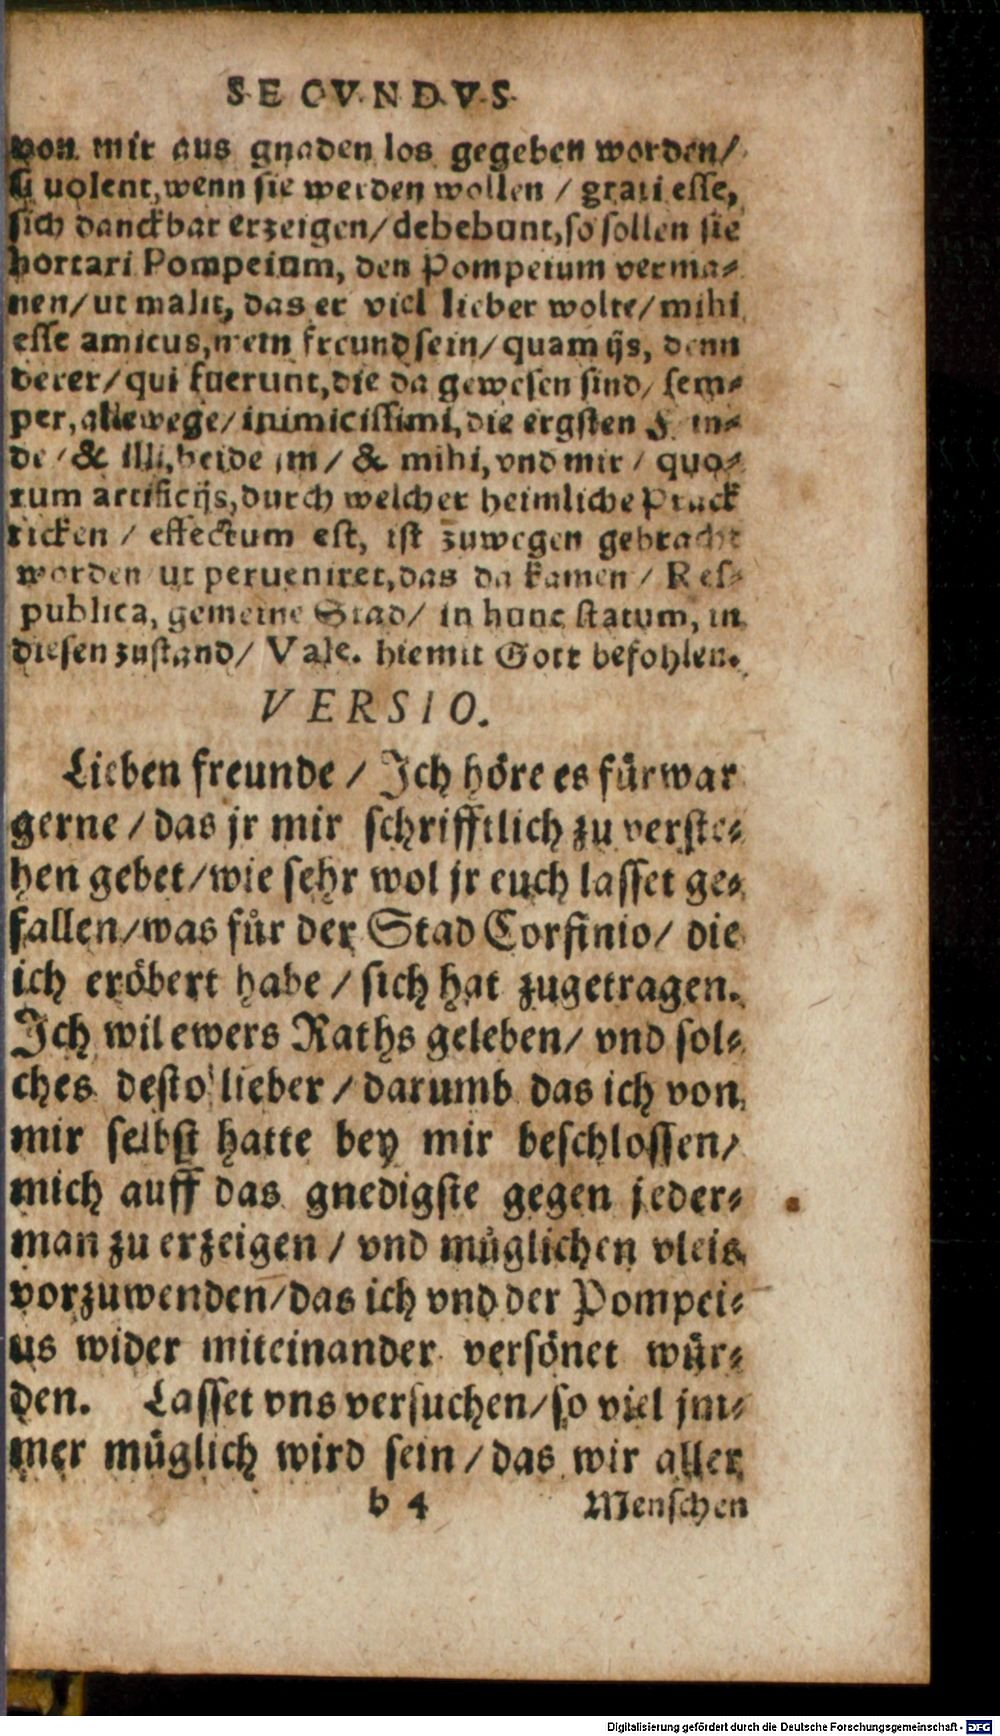 SECVNDVS
von mir aus gnaden los gegeben worden/
si uolent, wenn sie werden wollen / grati esse,
sich danckbar erzeigen/ debebunt, so sollen sie
hortari Pompeium, den Pompeium verma⸗
nen/ ut malit, das er viel lieber wolte/ mihi
esse amicus, mein freund sein/ quam ijs, denn
derer/ qui fuerunt, die da gewesen sind/ sem⸗
per, allewege/ inimicissimi, die ergsten Fein⸗
de / & illi, beide im/ & mihi, vnd mir / quo⸗
rum artificijs, durch welcher heimliche Prack
ticken / effectum est, ist zuwegen gebracht
worden / ut perueniret, das da kamen / Res⸗
publica, gemeine Stad/ in hunc statum, in
diesen zustand/ Vale. hiemit Gott befohlen.
VERSIO.
Lieben freunde / Ich höre es fürwar
gerne / das jr mir schrifftlich zu verste⸗
hen gebet/ wie sehr wol jr euch lasset ge⸗
fallen/ was für der Stad Corfinio/ die
ich eröbert habe / sich hat zugetragen.
Ich wil ewers Raths geleben/ vnd sol⸗
ches desto lieber / darumb das ich von
mir selbst hatte bey mir beschlossen/
mich auff das gnedigste gegen jeder⸗
man zu erzeigen / vnd müglichen vleis
vorzuwenden/ das ich vnd der Pompei⸗
us wider miteinander versönet wür⸗
den. Lasset vns versuchen/ so viel jm⸗
mer müglich wird sein / das wir aller
b 4 Menschen
Digitalisierung gefördert durch die Deutsche Forschungsgemeinschaft - DFG